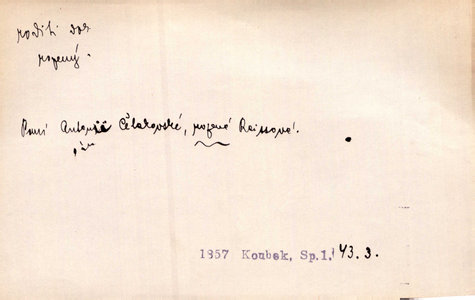 roditi dok
rozený.
Paní Antonie Čelakovské, rozené Reissové.
1857 Koubek, Sp.1. 43.3.